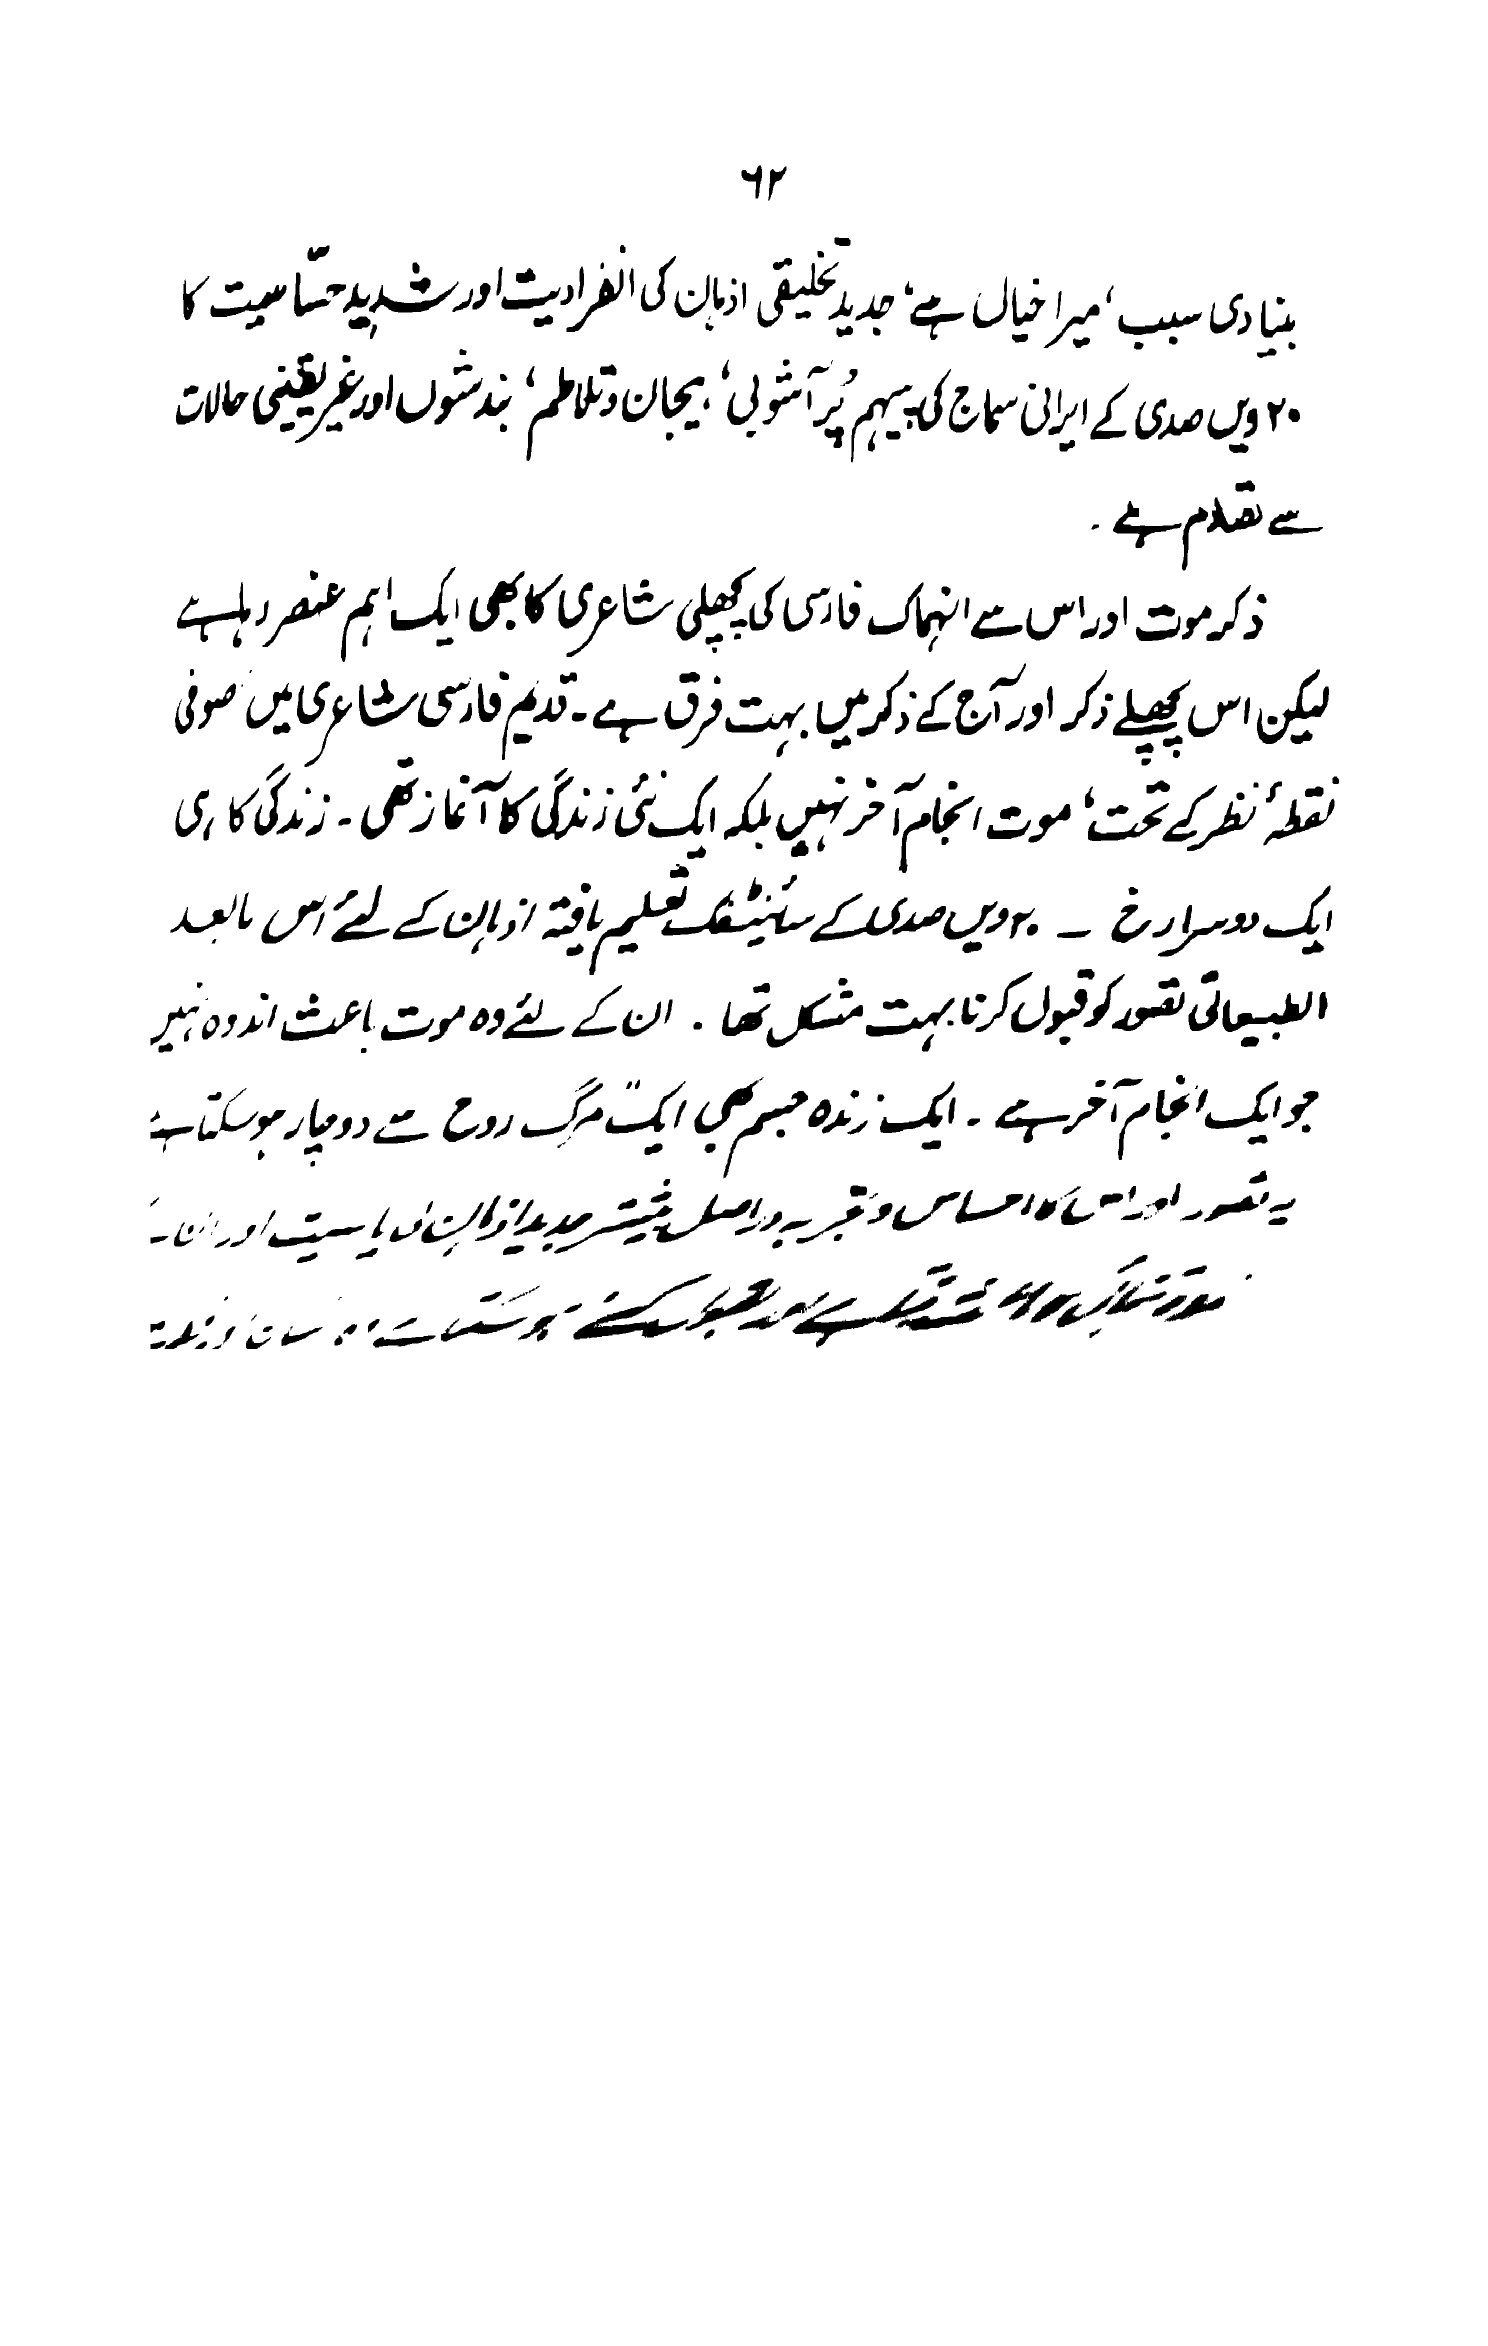 ۶۲
بنیادی سبب ، میرا خیال ہے ، جدید تخلیقی اذہان کی انفرادیت اور شدید حسّاسیت کا
۲۰ ویں صدی کے ایرانی سماج کی پیہم پُر آشوبی ، ہیجان و تلاطم ، بندشوں اور غیر یقینی حالات
سے تصادم ہے ۔
ذکر موت اور اس سے انہماک فارسی کی پچھلی شاعری کا بھی ایک اہم عنصر رہا ہے
لیکن اس پچھلے ذکر اور آج کے ذکر میں بہت فرق ہے ۔ قدیم فارسی شاعری میں صوفی
نقطۂ نظر کے تحت ، موت انجام آخر نہیں بلکہ ایک نئی زندگی کا آغاز تھی ۔ زندگی کا ہی
ایک دوسرا رخ ۔ ۲۰ ویں صدی کے سائنٹفک تعلیم یافتہ اذہان کے لئے اس مابعد
الطبیعاتی تصور کو قبول کرنا بہت مشکل تھا ۔ ان کے لئے وہ موت باعث اندوہ نہیں
جو ایک انجام آخر ہے ۔ ایک زندہ جسم بھی ایک " مرگ روح سے دوچار ہو سکتا ہے
یہ تصور اور اس کا احساس و تجربہ دراصل بیشتر جدید اذہان کی یاسیت اور ان